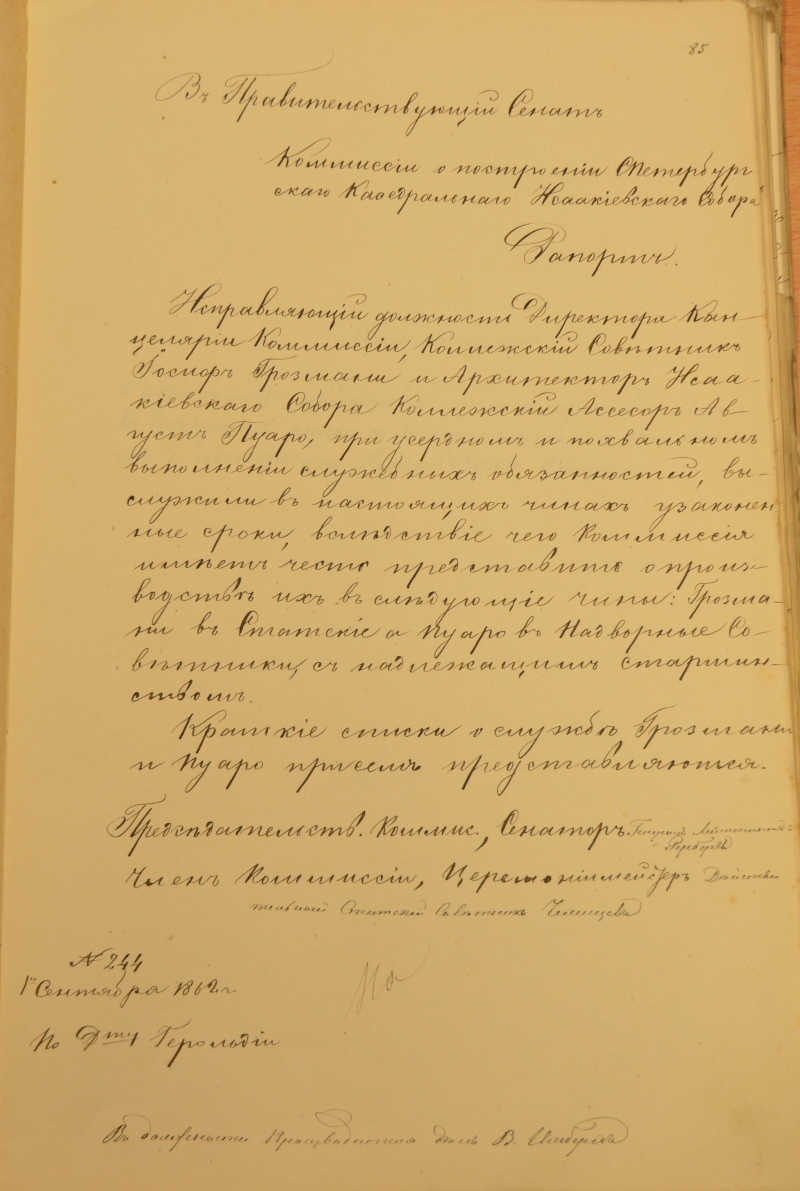 85
Въ Правительствующій Сенатъ
Коммиссіи о построеніи СПетербург
скаго Каѳедральнаго Исаакіевскаго Собора
Рапортъ.
Исправляющій должность Директора Кан-
целяріи Коммиссіи, Коллежскій Совѣтникъ
Іосифъ Грозмани и Архитекторъ Исаа-
кіевскаго Собора Коллежскій Ассесоръ Ав-
густъ Пуаро, при усердномъ и похвальномъ
выполненіи служебныхъ обязанностей, вы-
служили въ настоящихъ чинахъ узаконен
ные сроки, вслѣдствіе чего Коммиссія
имѣетъ честь представить о произ-
водствѣ ихъ въ слѣдующіе чины: Грозма-
ни въ Статскіе а Пуаро въ Надворные Со-
вѣтники, съ надлежащимъ старшин-
ствомъ.
Краткіе списки о службѣ Грозмани
и Пуаро присемъ представляются.
Предсѣдательств. Коммис., Сенаторъ Генералъ Лейтенантъ
Членъ Коммиссіи, Церемоніймейстеръ Дѣйстви
тельный Статскій Совѣтникъ
№ 244
1го Сентября 1862 г.
По Дту Герольдіи
Въ должности Производителя дѣлъ В.